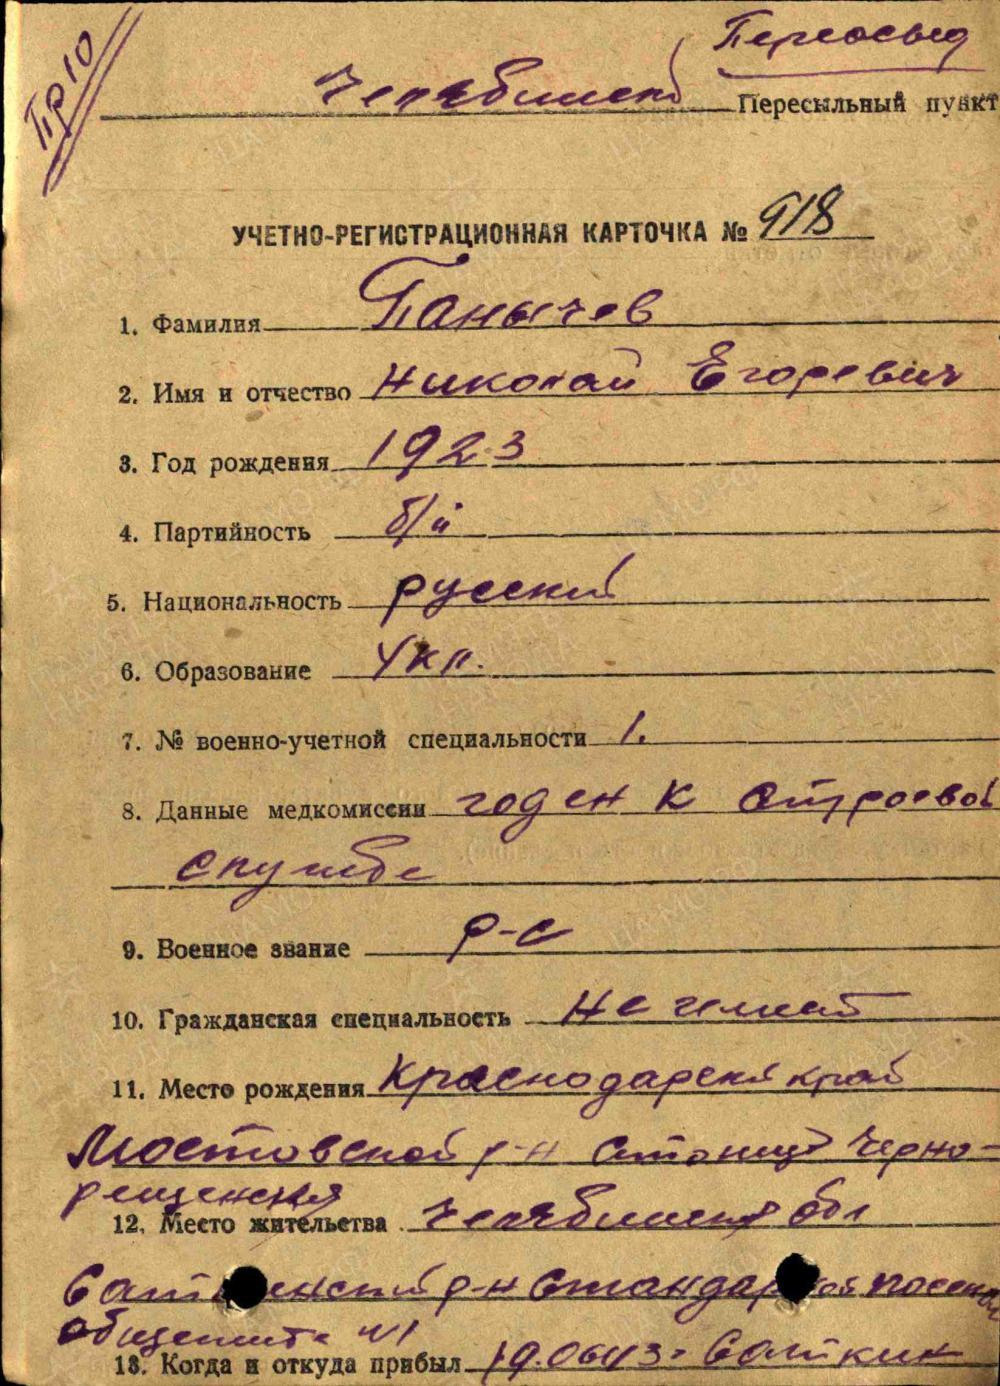 Пр 10
Челябинский Пересыльный пункт
УЧЕТНО-РЕГИСТРАЦИОННАЯ КАРТОЧКА № 918
1. Фамилия Панычев
2. Имя и отчество Николай Егоревич
3. Год рождения 1923
4. Партийность б/п
5. Национальность русский
6. Образование 4 кл.
7. № военно-учетной специальности 1.
8. Данные медкомиссии годен к строевой
службе
9. Военное звание р-с
10. Гражданская специальность Не имеет
11. Место рождения Краснодарский край
Мостовской р-н станица Черно-
реценская
12. Место жительства Челябинская обл
Саткинский р-н Стандартной поселок
общежит № 1
13. Когда и откуда прибыл 19.06.43.